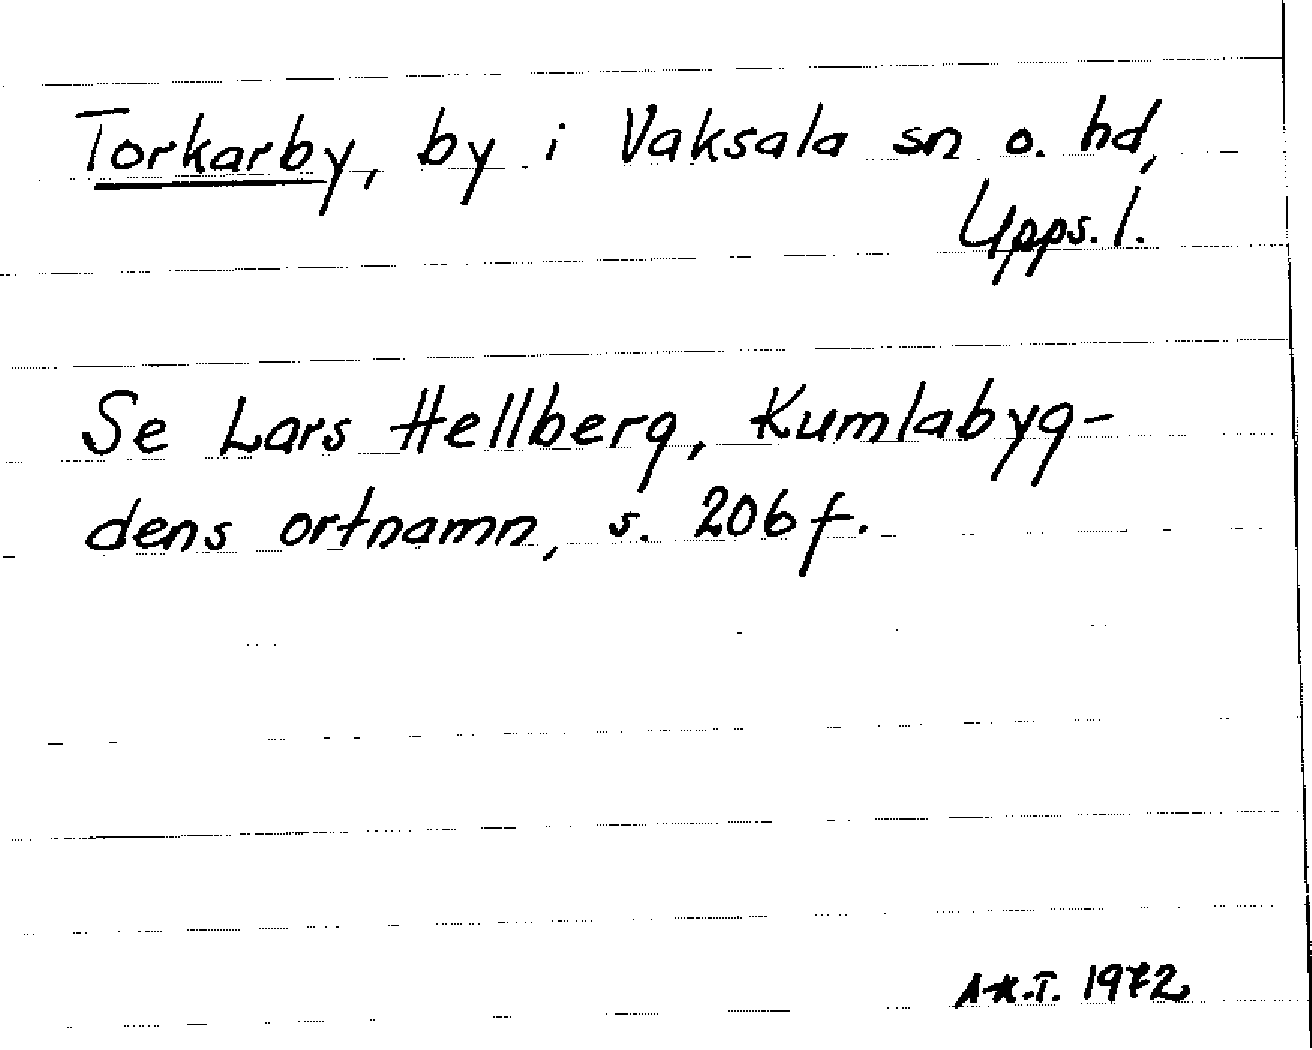 Torkarby, by i Vaksala sn o. hd,
Upps. l.
Se Lars Hellberg, Kumlabyg-
dens ortnamn, s. 206 f.
A-K.T. 1972